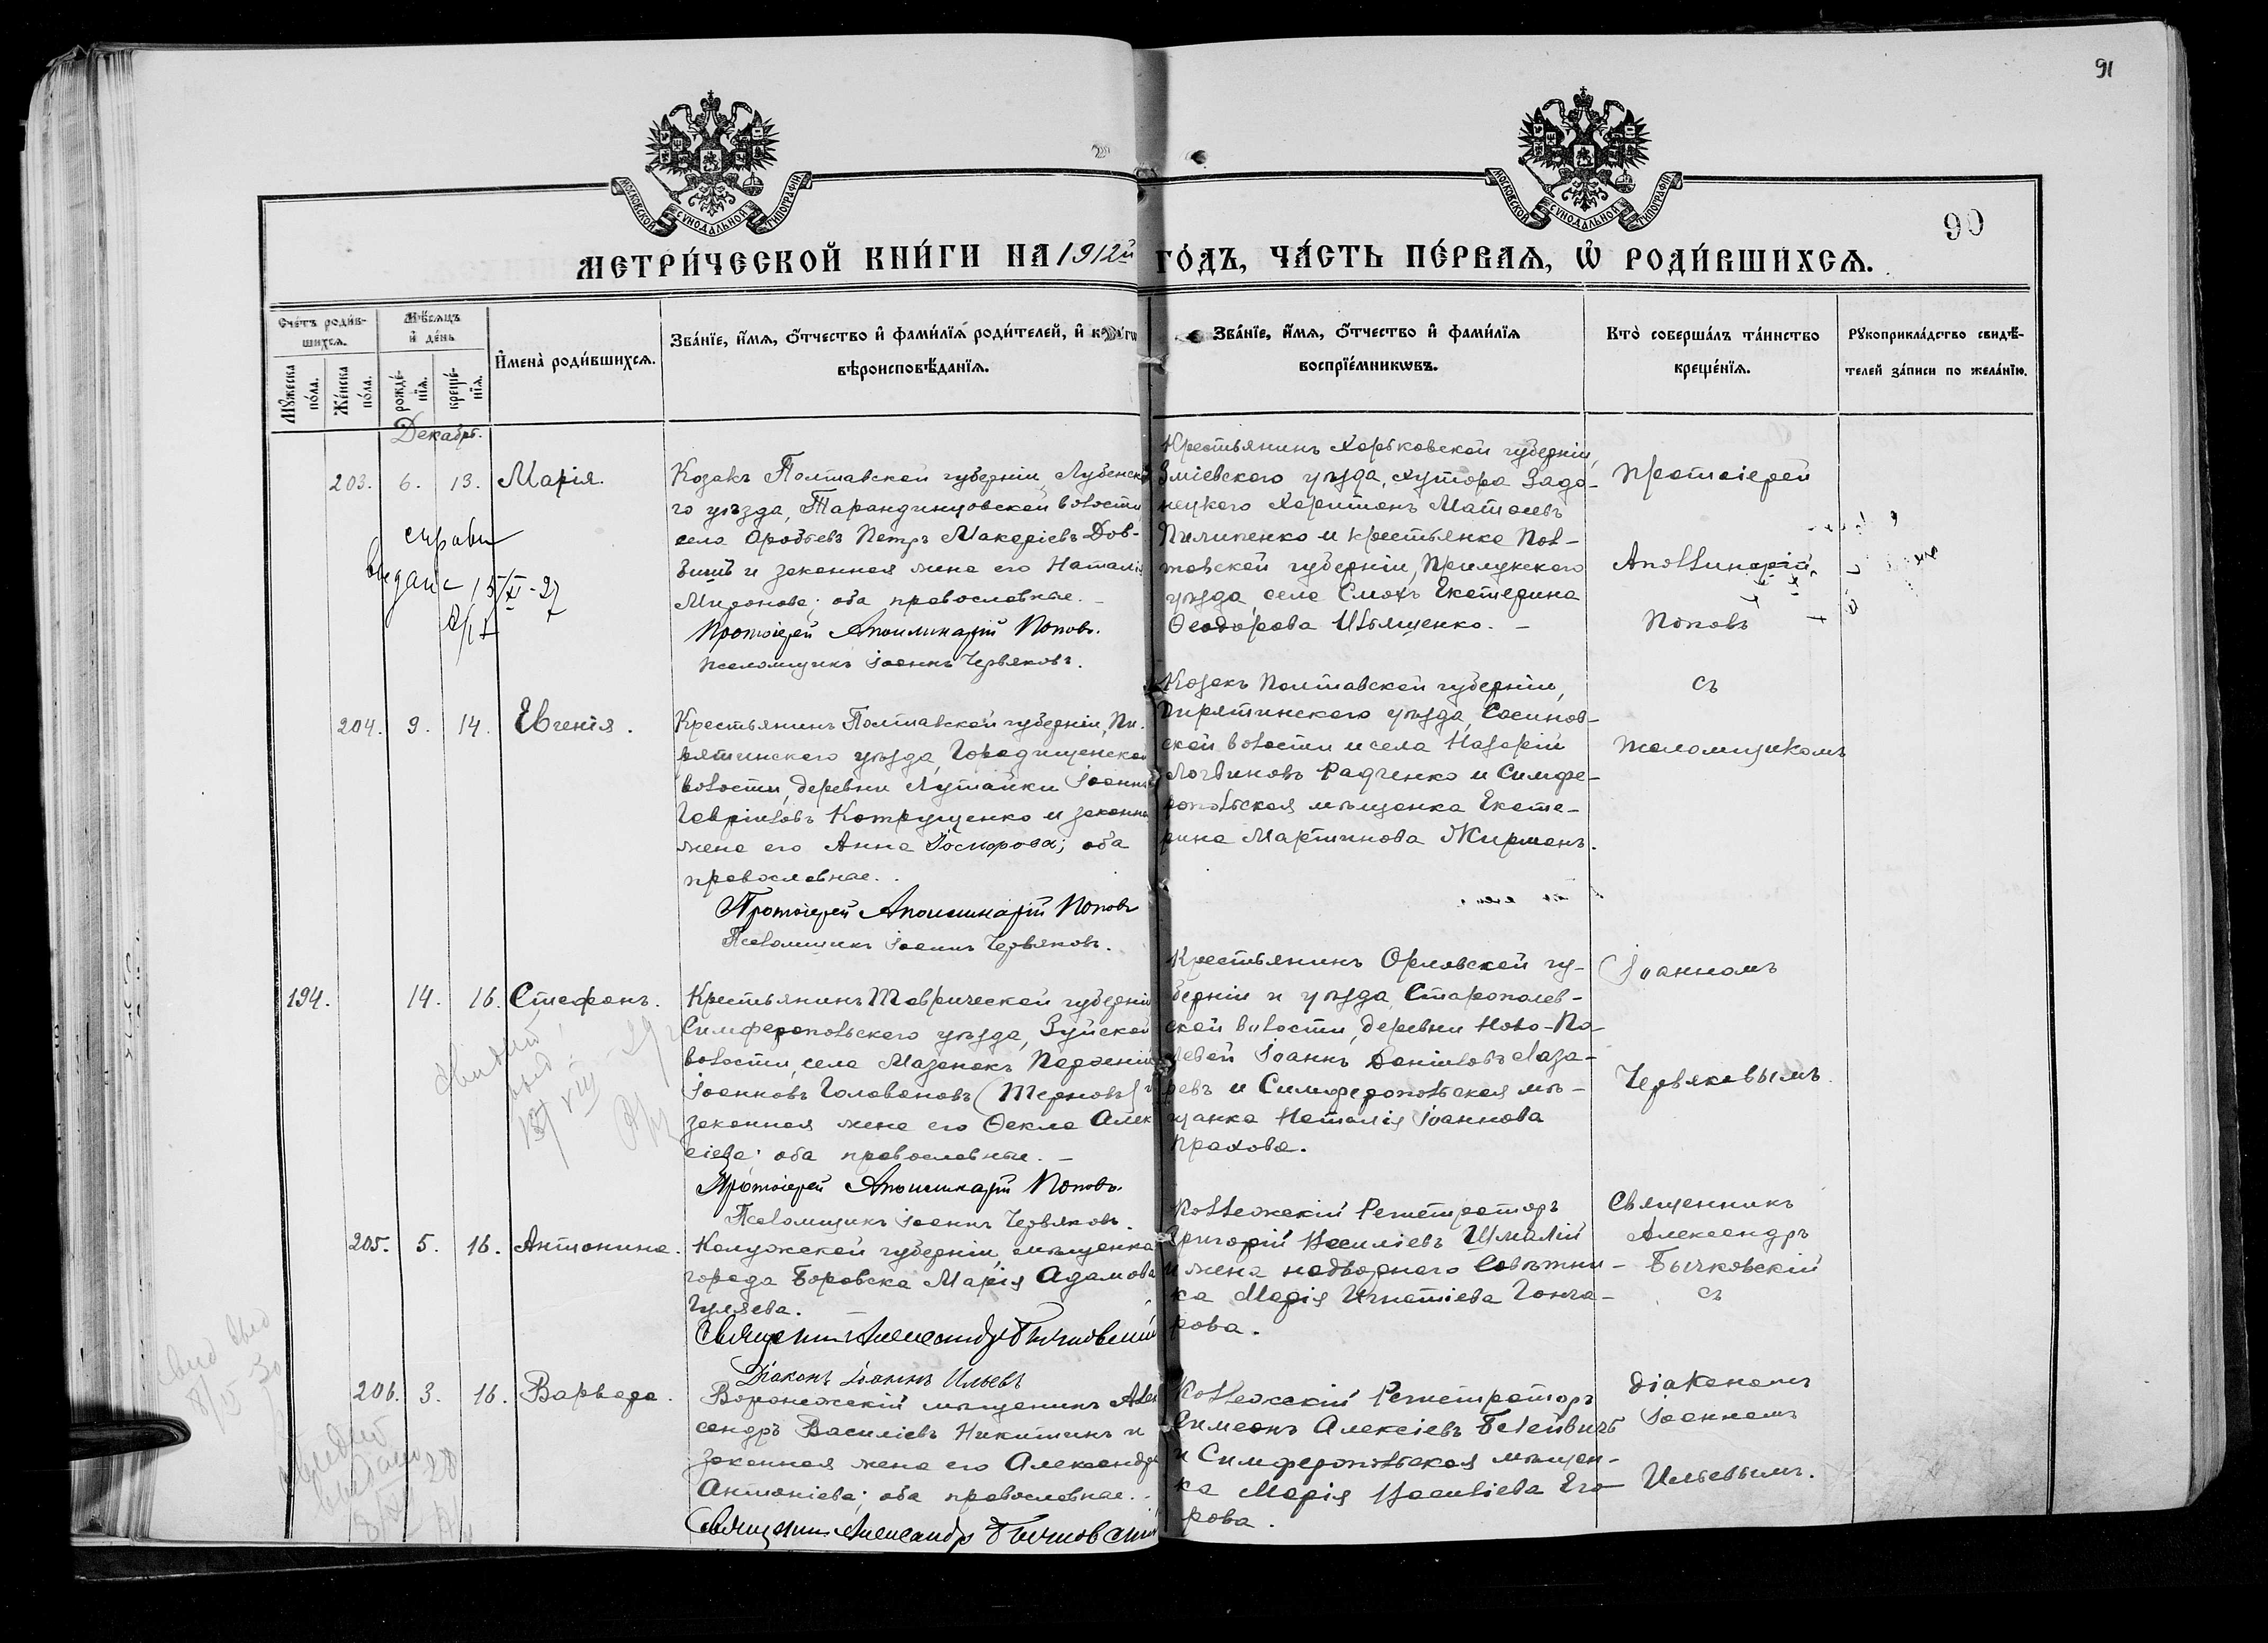 91
90
МОСКОВСКОЙ СУНОДАЛЬНОЙ ТИПОГРАФІИ
МОСКОВСКОЙ СУНОДАЛЬНОЙ ТИПОГРАФІИ
МЕТРИ́ЧЕСКОЙ КНИ́ГИ НА 1912й ГО́ДЪ, ЧА́СТЬ ПЕ́РВАѦ, Ѡ РОДИ́ВШИХСѦ.
Сче́тъ роди́в-
шихсѧ.
Мѣ́сѧцъ
и де́нь
Мꙋ́жеска
по́ла.
Же́нска
по́ла.
рожде́-
нїѧ.
креще́-
нїѧ.
И҆мена̀ роди́вшихсѧ.
Зва́нїе, и҆́мѧ, ѻ҆́тчество и҆ фами́лїѧ роди́телей, и҆
вѣроисповѣ́данїѧ.
Зва́нїе, и҆́мѧ, ѻ҆́тчество и҆ фами́лїѧ
воспрїе́мникѡвъ.
Кто̀ соверша́лъ та́инство
креще́нїѧ.
Рꙋкоприкла́дство свидѣ́-
телей за́писи по жела́нїю.
Декабрь.
203. 6. 13. Марія.
Козакъ Полтавской губерніи, Лубенска-
го уѣзда, Тарандинцовской волости
села Петръ Макаріевъ Дов-
и законная жена его Наталія
Миронова; оба православные. –
Протоіерей Аполлинарій Поповъ.
Псаломщикъ Іоаннъ Червяковъ.
Крестьянинъ Харьковской губерніи,
Зміевского уѣзда, хутора Задо-
нецкого Харитонъ Матѳеевъ
Пилипенко и крестьянка Пол-
тавской губерніи, Прилукского
уѣзда, села Смошъ Екатерина
Ѳеодорова Ильященко. –
Протоіерей
Аполлинарій
Поповъ
съ
псаломщикомъ
Іоанномъ
Червяковымъ.
справка
выдана 15/XI - 27
204. 9. 14. Евгенія.
Крестьянинъ Полтавской губерніи, Пи-
рятинского уѣзда, Городищенской
волости, деревни Лутайки Іоаннъ
Гавріиловъ Котрущенко и законная
жена его Анна; оба
православные.
Протоіерей Аполлинарій Поповъ
Псаломщикъ Іоаннъ Червяковъ.
Козакъ Полтавской губерніи,
Пирятинского уѣзда, Сасинов-
ской волости и села Назарій
Логвиновъ Радченко и Симфе-
ропольская мѣщанка Екате-
рина Мартинова Жирманъ.
194. 14. 16. Стефанъ.
Крестьянинъ Таврической губерніи
Симферопольского уѣзда, Зуйской
волости, села Мазанокъ Парѳеній
Іоанновъ Головановъ (Терновъ) и
законная жена его Ѳекла Алек-
сіева; оба православные. –
Протоіерей Аполлинарій Поповъ.
Псаломщикъ Іоаннъ Червяковъ.
Крестьянинъ Орловской гу-
берніи и уѣзда, Старополев-
ской волости, деревни Ново-По-
левой Іоаннъ Даніиловъ Лаза-
ревъ и Симферопольская мѣ-
щанка Наталія Іоаннова
Прахова.
205. 5. 16. Антонина.
Калужской губерніи, мѣщанка
города Боровска Марія Адамова
Гуляева. –
Священникъ Александръ Бычковскій
Діаконъ Іоаннъ Ильевъ
Коллежскій Регистраторъ
Григорій Василіевъ Шмалій
и жена надворного Совѣтни-
ка Марія Игнатіева Гонча-
рова.
Священникъ
Александръ
Бычковскій
съ
діакономъ
Іоанномъ
Ильевымъ.
206. 3. 16. Варвара.
Воронежскій мѣщанинъ Алек-
сандръ Василіевъ Никитинъ и
законная жена его Александра
Антоніева; оба православные.
Священникъ Александръ Бычковскій
Коллежскій Регистраторъ
Симеонъ Алексіевъ Белейвичъ
и Симферопольская мѣщан-
ка Марія Василіева Его-
рова.